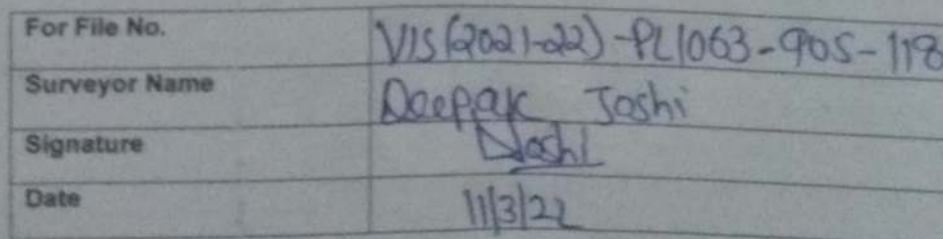 For File No. VIS(2021-22)-PL1063-905-118
Surveyor Name Deepak Joshi
Signature DJoshi
Date 11/3/22